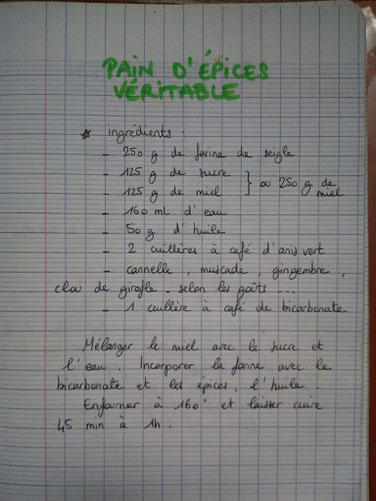 PAIN D'ÉPICES
VÉRITABLE
* ingrédients :
- 250 g de farine de seigle
- 125 g de sucre
- 125 g de miel } ou 250 g de miel
- 160 ml d'eau
- 50 g d'huile
- 2 cuillères à café d'anis vert
- cannelle, muscade, gingembre,
clou de girofle - selon les goûts ...
- 1 cuillère à café de bicarbonate
Mélanger le miel avec le sucre et
l'eau. Incorporer la farine avec le
bicarbonate et les épices, l'huile.
Enfourner à 160° et laisser cuire
45 min à 1h.